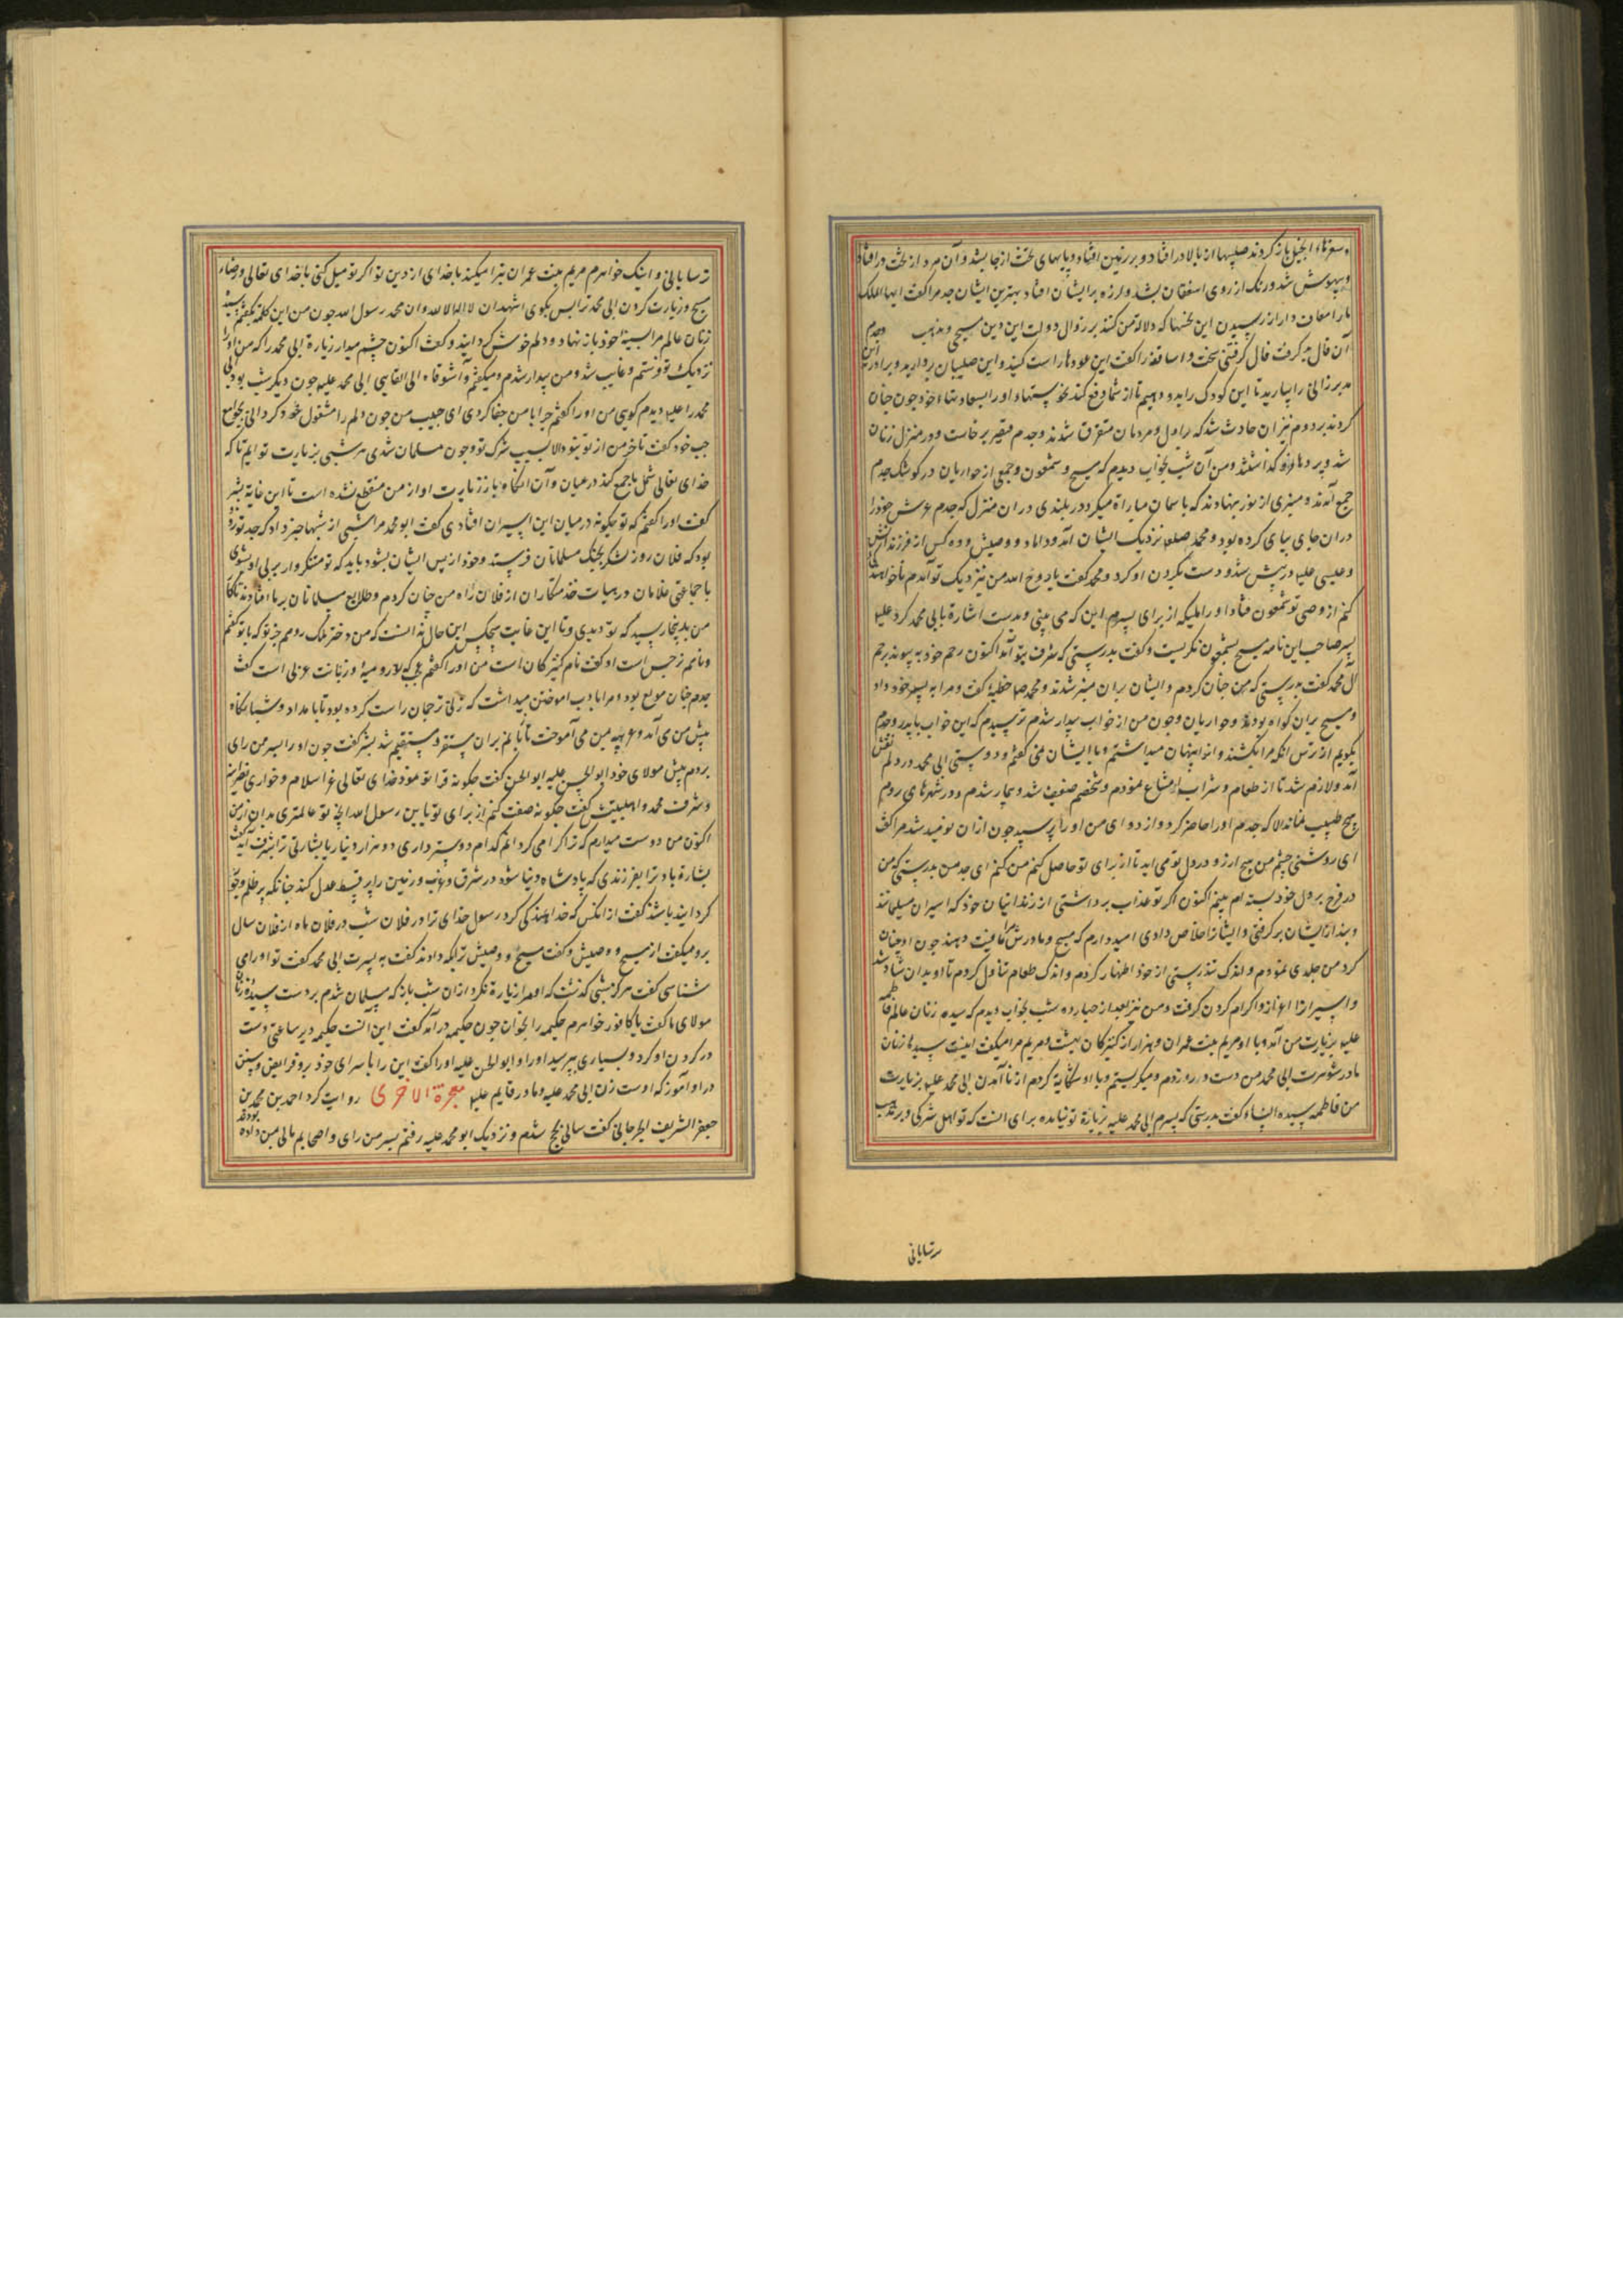 و سفرهاء انجیل باز کردند صلیبها از بالا در افتاد و بر زمین افتاد و پایهای تخت از جا بشد و آن مرد از تخت در افتاد
و بیهوش شد و رنک از روی اسقفان بشد و لرزه بر ایشان افتاد بهترین ایشان جدم را کفت ایها الملک
ما را معاف دار از رسیدن این نحسها که دلالة میکند بر زوال دولت این دین مسیحی و مذهب
و جدم
آن فال بد کرفت فال کرفتنی سخت و اساقفه را کفت این عودها راست کنید و این صلیبان بردارید و برادر
این
مدبر را بیارید تا این کودک را بدو دهیم تا از شما دفع کند نحوستها و او را بسعادتها خود چون چنان
کردند بر دوم نیز آن حادث شد که بر اول و مردمان متفرق شدند و جدم متغیر برخاست و در منزل زنان
شد و پردها فرو کذاشتند و من آن شب بخواب دیدم که مسیح و شمعون و جمعی از حواریان در کوشک جدم
جمع آمدند و منبری از نور بنهادند که با سمان مباراة میکرد در بلندی در ان منزل که جدم عرش خود را
در ان جای بپای کرده بود و محمد صلعم نزدیک ایشان آمد و داماد و وصیش و ده کس از فرزندانش
و عیسی علیه در پیش شد و دست بکردن او کرد و محمد کفت یا روح الله من نزدیک تو آمدم تا خواستاری
کنم از وصی تو شمعون فتاة او را ملیکه از برای پسرم این که می بینی و بدست اشارة بابی محمد کرد علیه
پسر صاحب این نامه مسیح بشمعون نکریست و کفت بدرستی که شرف بتو آمد اکنون رحم خود به پیوند برحم
آل محمد کفت بدرستی که من چنان کردم و ایشان بران منبر شدند و محمد صلعم خطبه کفت و مرا به پسر خود داد
و مسیح بران کواه بود و حواریان و چون من از خواب بیدار شدم ترسیدم که این خواب با پدر و جدم
بکویم از ترس انکه مرا بکشند و از ایشان پنهان میداشتم و با ایشان نمی کفتم و دوستی ابی محمد در دلم نقش
آمد و لازم شد تا از طعام و شراب امتناع نمودم و شخصم ضعیف شد و بیمار شدم و در شهرهای روم
هیچ طبیب نماند الا که جدم او را حاضر کرد و از دوای من او را پرسید چون ازان نومید شد مرا کفت
ای روشنی چشم من هیچ آرزو در دل تو می اید تا از برای تو حاصل کنم من کفتم ای جد من بدرستی که من
در فرج بر دل خود بسته ام می بینم اکنون اکر تو عذاب برداشتی از زندانیان خود که اسیران مسلمانند
و بند از ایشان بر کرفتی و ایشان را خلاص دادی امید دارم که مسیح و مادرش مرا عافیت دهند چون او چنان
کرد من جلدی نمودم و اندک تندرستی از خود اظهار کردم و اندک طعام تناول کردم تا او بدان شاد شد
و اسیران را اعزاز و اکرام کردن کرفت و من نیز بعد از چهارده شب بخواب دیدم که سیده زنان عالم فاطمه
علیها بزیارت من آمد و با او مریم بنت عمران و هزار از کنیزکان بهشت و مریم مرا میکفت اینست سیده زنان
مادر شوهرت ابی محمد من دست در رو زدم و میکریستم و با او شکایة کردم از نا آمدن ابی محمد علیه بزیارت
من فاطمه سیده النساء کفت بدرستی که پسرم ابی محمد علیه زیارة تو نیامده برای انست که تو اهل شرکی و بر مذهب
ترسایانی
ترسایانی و اینک خواهرم مریم بنت عمران تبرا میکند با خدای از دین تو اکر تو میل کنی با خدای تعالی و رضاء
مسیح و زیارت کردن ابی محمد ترا پس بکوی اشهد ان لا اله الا الله و ان محمد رسول الله چون من این کلمه بکفتم سیده
زنان عالم مرا بسینه خود باز نهاد و دلم خوش کردانید و کفت اکنون چشم میدار زیارة ابی محمد را که من او را
نزدیک تو فرستم و غایب شد و من بیدار شدم و میکفتم وا شوقاه الی لقاء ابی محمد علیه چون دیکر شب بود ابی
محمد را علیه دیدم کویی من او را کفتم چرا با من جفا کردی ای حبیب من چون دلم را مشغول خود کردانی بجوامع
حب خود کفت تاخر من از تو نبود الا بسبب شرک تو و چون مسلمان شدی هر شبی بزیارت تو ایم تا که
خدای تعالی شمل ما جمع کند در عیان و آن انکاه باز زیارت او از من منقطع نشده است تا این غایة بشر
کفت او را کفتم که تو چکونه درمیان این اسیران افتادی کفت ابو محمد مرا شبی از شبها خبر داد که جد تو زود
بود که فلان روز لشکر بجنک مسلمانان فرستد و خود از پس ایشان بشود باید که تو متنکروار بر پی او بشوی
با جماعتی غلامان در هیات خدمتکاران از فلان راه من چنان کردم و طلایع مسلمانان بر ما افتادند تا کار
من بدینجا رسید که تو دیدی و تا این غایت هیچکس این حال ندانست که من دختر ملک رومم جز تو که با تو کفتم
و نامم نرجس است او کفت نام کنیزکان است من او را کفتم عجب که تو رومیه و زبانت عربی است کفت
جدم چنان مولع بود و مرا بادب اموختن میداشت که زنی ترجمان راست کرده بود تا بامداد و شبانکاه
پیش من می آمد و عربیه بمن می آموخت تا زبانم بران مستقر و مستقیم شد بشر کفت چون او را بسر من رای
بردم پیش مولای خود ابو الحسن علیه ابو الحسن کفت چکونه فرا تو نمود خدای تعالی عز اسلام و خواری نصرانیه
و شرف محمد و اهل بیتش کفت چکونه صفت کنم از برای تو یا ابن رسول الله انچه تو عالمتری بدان از من
اکنون من دوست میدارم که ترا کرامی کردانم کدام دوستر داری ده هزار دینار یا بشارتی ترا بشرف ابد کفت
بشارة باد ترا بفرزندی که پادشاه دنیا شود در شرق و غرب و زمین را پر قسط و عدل کند چنانکه پر ظلم و جور
کردانیده باشند کفت از انکس که خداوندکی کرد رسول خدای ترا در فلان شب در فلان ماه از فلان سال
برو میکفت از مسیح و وصیش و کفت مسیح و وصیش ترا بکه دادند کفت به پسرت ابی محمد کفت تو او را می
شناسی کفت هرکز شبی کذشت که او مرا زیارة نکرد از ان شب باز که مسلمان شدم بر دست سیده زنان
مولای ما کفت یا کافور خواهرم حکیمه را بخوان چون حکیمه در آمد کفت این انست حکیمه دیر ساعتی دست
در کردن او کرد و بسیاری بپرسید او را و ابو الحسن علیه او را کفت این را با سرای خود برو فرایض و سنن
در او آموز که اوست زن ابی محمد علیه و مادر قایم علیه معجزة الاخری روایت کرد احمد بن محمد بن
جعفر الشریف الجرجانی کفت سالی بحج شدم و نزدیک ابو محمد علیه رفتم بسر من رای و اصحابم مالی بمن داده
بودند